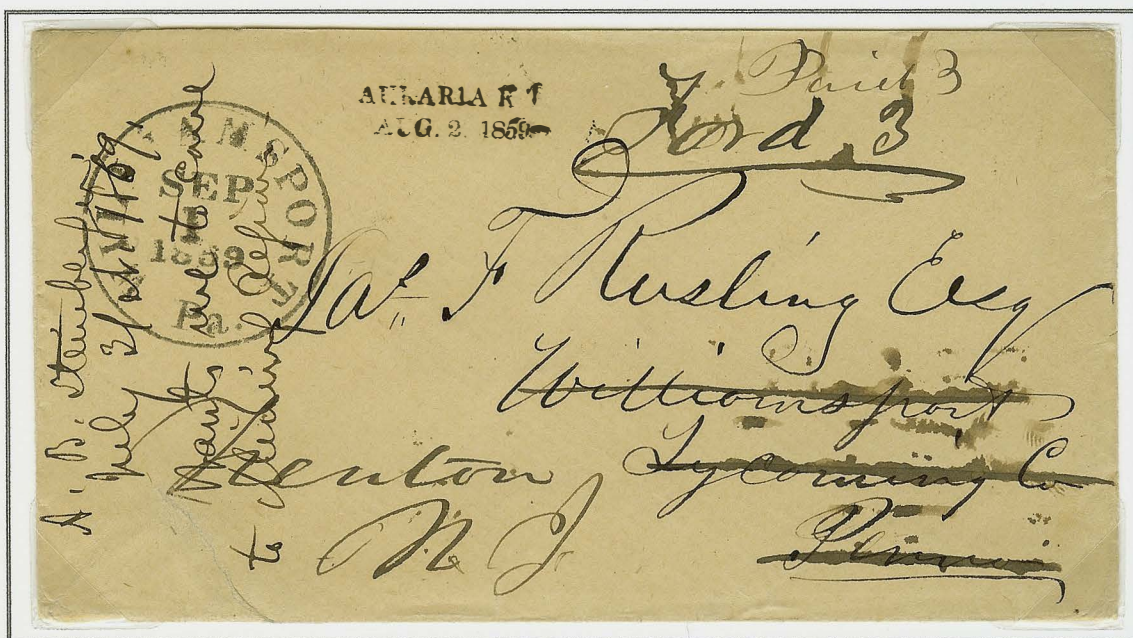 Paid 3
AURARIA K T
AUG. 2. 1859
Ford. 3
WILLIAMSPORT
SEP
1
1859
Pa.
Jas F Rusling Esq
Williamsport
Lycoming Co
Penna
Trenton
N J
A. B. Steinberger
July 31st 1859
Wants me to come
to